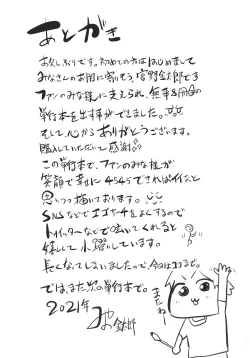 あとがき
お久しぶりです。初めての方ははじめまして
みなさんのお股に寄りそう、宮野金太郎です
ファンのみな様に支えられ、無事8冊目の
単行本を出す事ができました。
そして、心からありがとうございます。
購入していただいて感謝
この単行本で、ファンのみな様が
笑顔で幸せに4545できればイイなと
思いつつ描いております。
SNSなどでエゴサーチをよくするので
トゥイッターなどで呟いてくれると
嬉しくて小躍りしています。
長くなってしまいましたので、今回はココまで。
では、また次の単行本で。
2021年
またねー